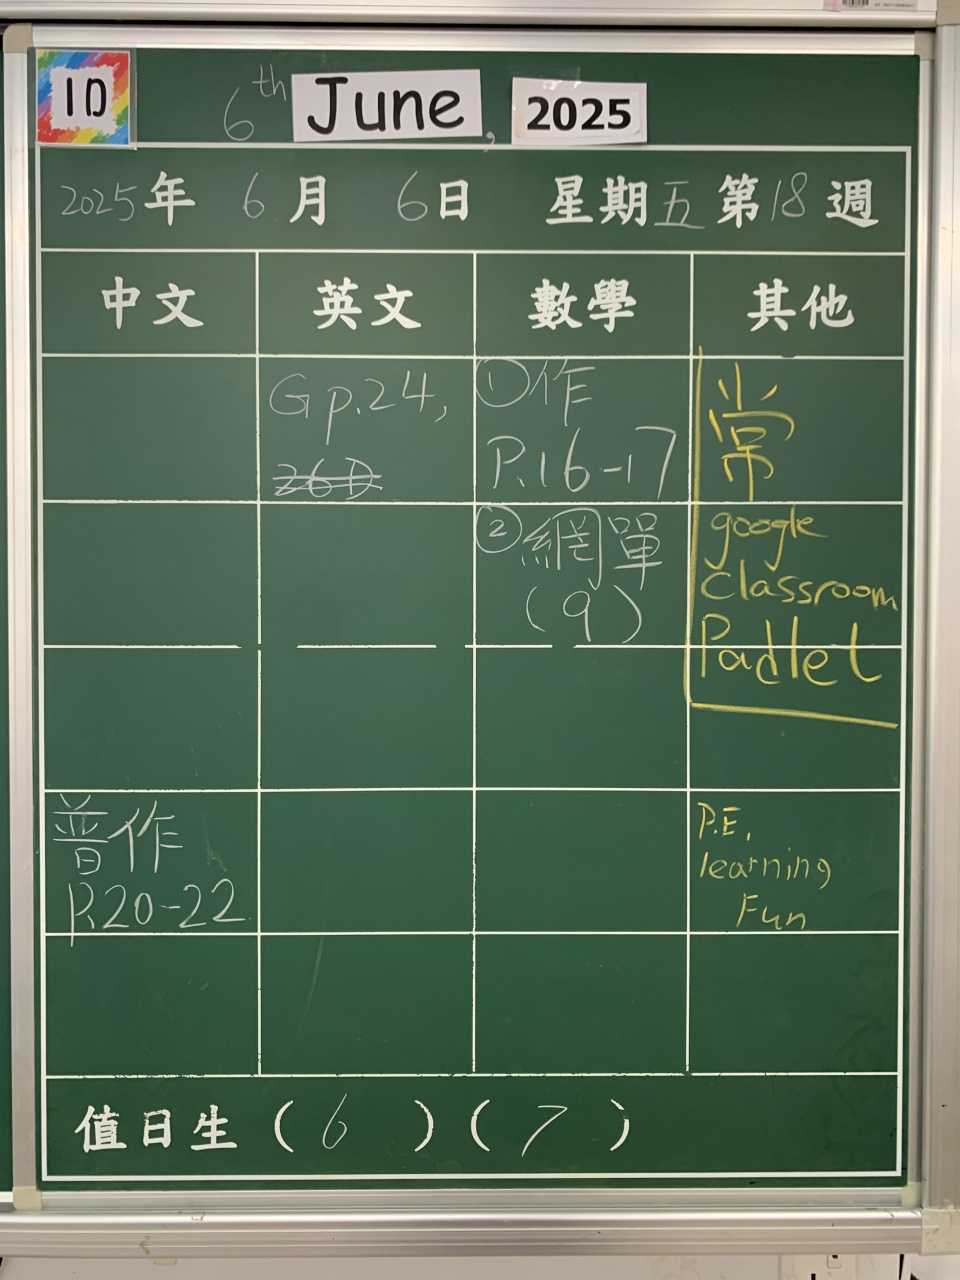 1D
6th June, 2025
2025年 6月 6日 星期五 第18週
中文 英文 數學 其他
Gp.24,
26D
①作
P.16-17
常
②網單
(9)
google
classroom
Padlet
普作
P.20-22
P.E.
learning
Fun
值日生 (6) (7)